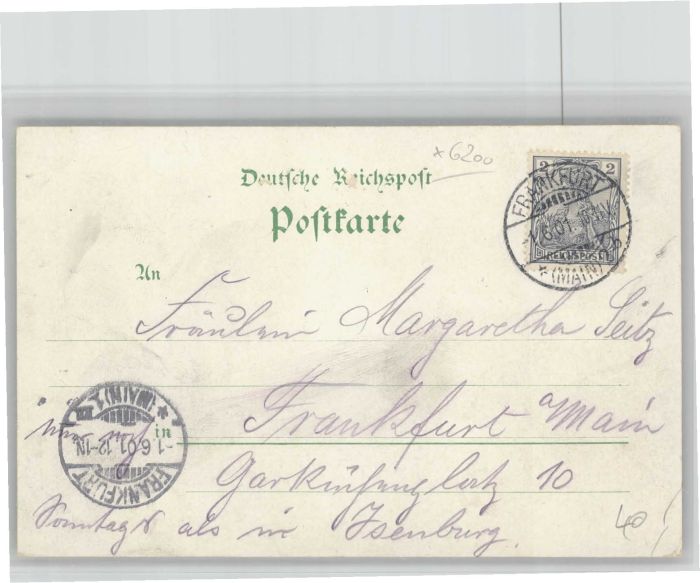 *6200
2 2
Deutsche Reichspost
Postkarte
FRANKFURT
6.01
* (MAIN)
REICHSPOST
An
Fräulein Margaretha Seitz
in
Frankfurt a/Main
10
FRANKFURT
-1.6.01.12-1N.
* (MAIN) 1.
Sonntags als in Isenburg.